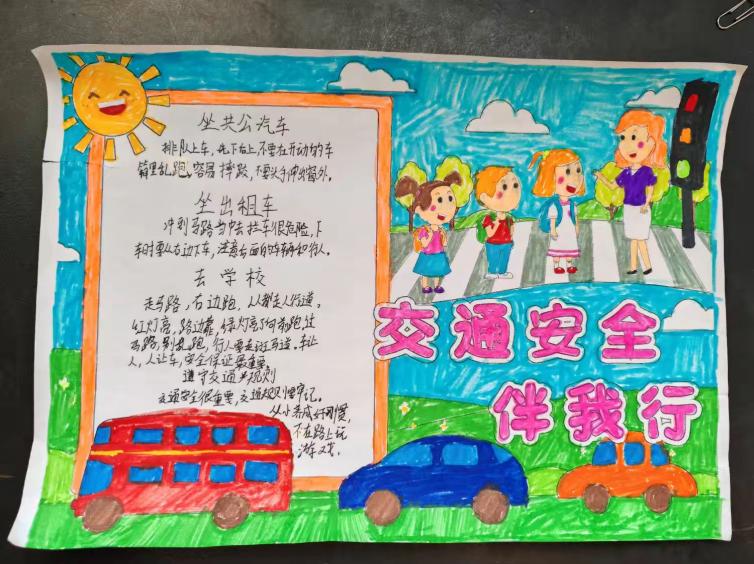 坐共公汽车
排队上车，先下后上，不要在开动的车
箱里乱跑，容易摔跤，不要头手伸出窗外。
坐出租车
冲到马路当中去拦车很危险，下
车时要从右边下车，注意后面的车辆和行人。
去学校
走马路，右边跑，人人都走人行道，
红灯亮，路边靠，绿灯亮了向前跑，过
马路，别乱跑，行人要走过马道。车让
人，人让车，安全保证最重要
遵守交通规则
交通安全很重要，交通规则要牢记。
从小养成好习惯，
不在路上玩
游戏。
交通安全
伴我行